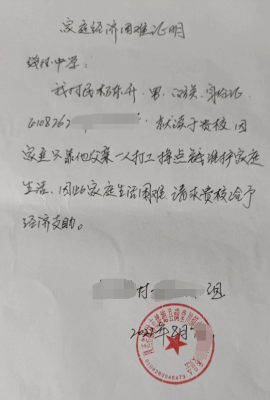 家庭经济困难证明
中学：
我村民杨东升，男，汉族，身份证
6108262 就读于贵校，因
家庭只靠他父亲一人打工挣点钱维护家庭
生活，因此家庭生活困难，请求贵校给予
经济支助。
村 组
年8月